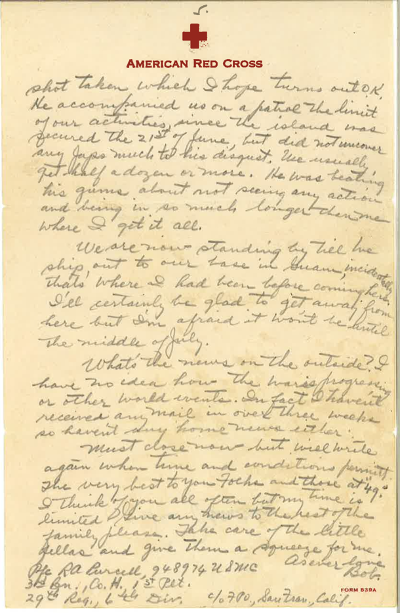 5.
AMERICAN RED CROSS
shot taken which I hope turns out O.K.
He accompanied us on a patrol the limit
of our activities, since the island was
secured the 21st of June, but did not uncover
any Japs much to his disgust. We usually
get half a dozen or more. He was beating
his gums about not seeing any action
and being in so much longer than me
where I get it all.
We are now standing by till we
ship out to our base in Guam incidentally
thats where I had been before coming here.
I'll certainly be glad to get away from
here but I'm afraid it won't be until
the middle of July.
What's the news on the outside? I
have no idea how the war is progressing
or other world events. In fact I haven't
received any mail in over three weeks
so havent any home news either.
Must close now but will write
again when time and conditions permit.
The very best to you Folks and those at "49".
I think of you all often but my time is
limited. Give any news to the rest of the
family please. Take care of the little
fellas and give them a squeeze for me.
As ever love
Bob.
Pfc R A Purcell, 948974 USMC
3rd Bn., Co. H, 1st Plt.
29th Reg., 6th Div. c/o FPO, San Fran, Calif
FORM 539A